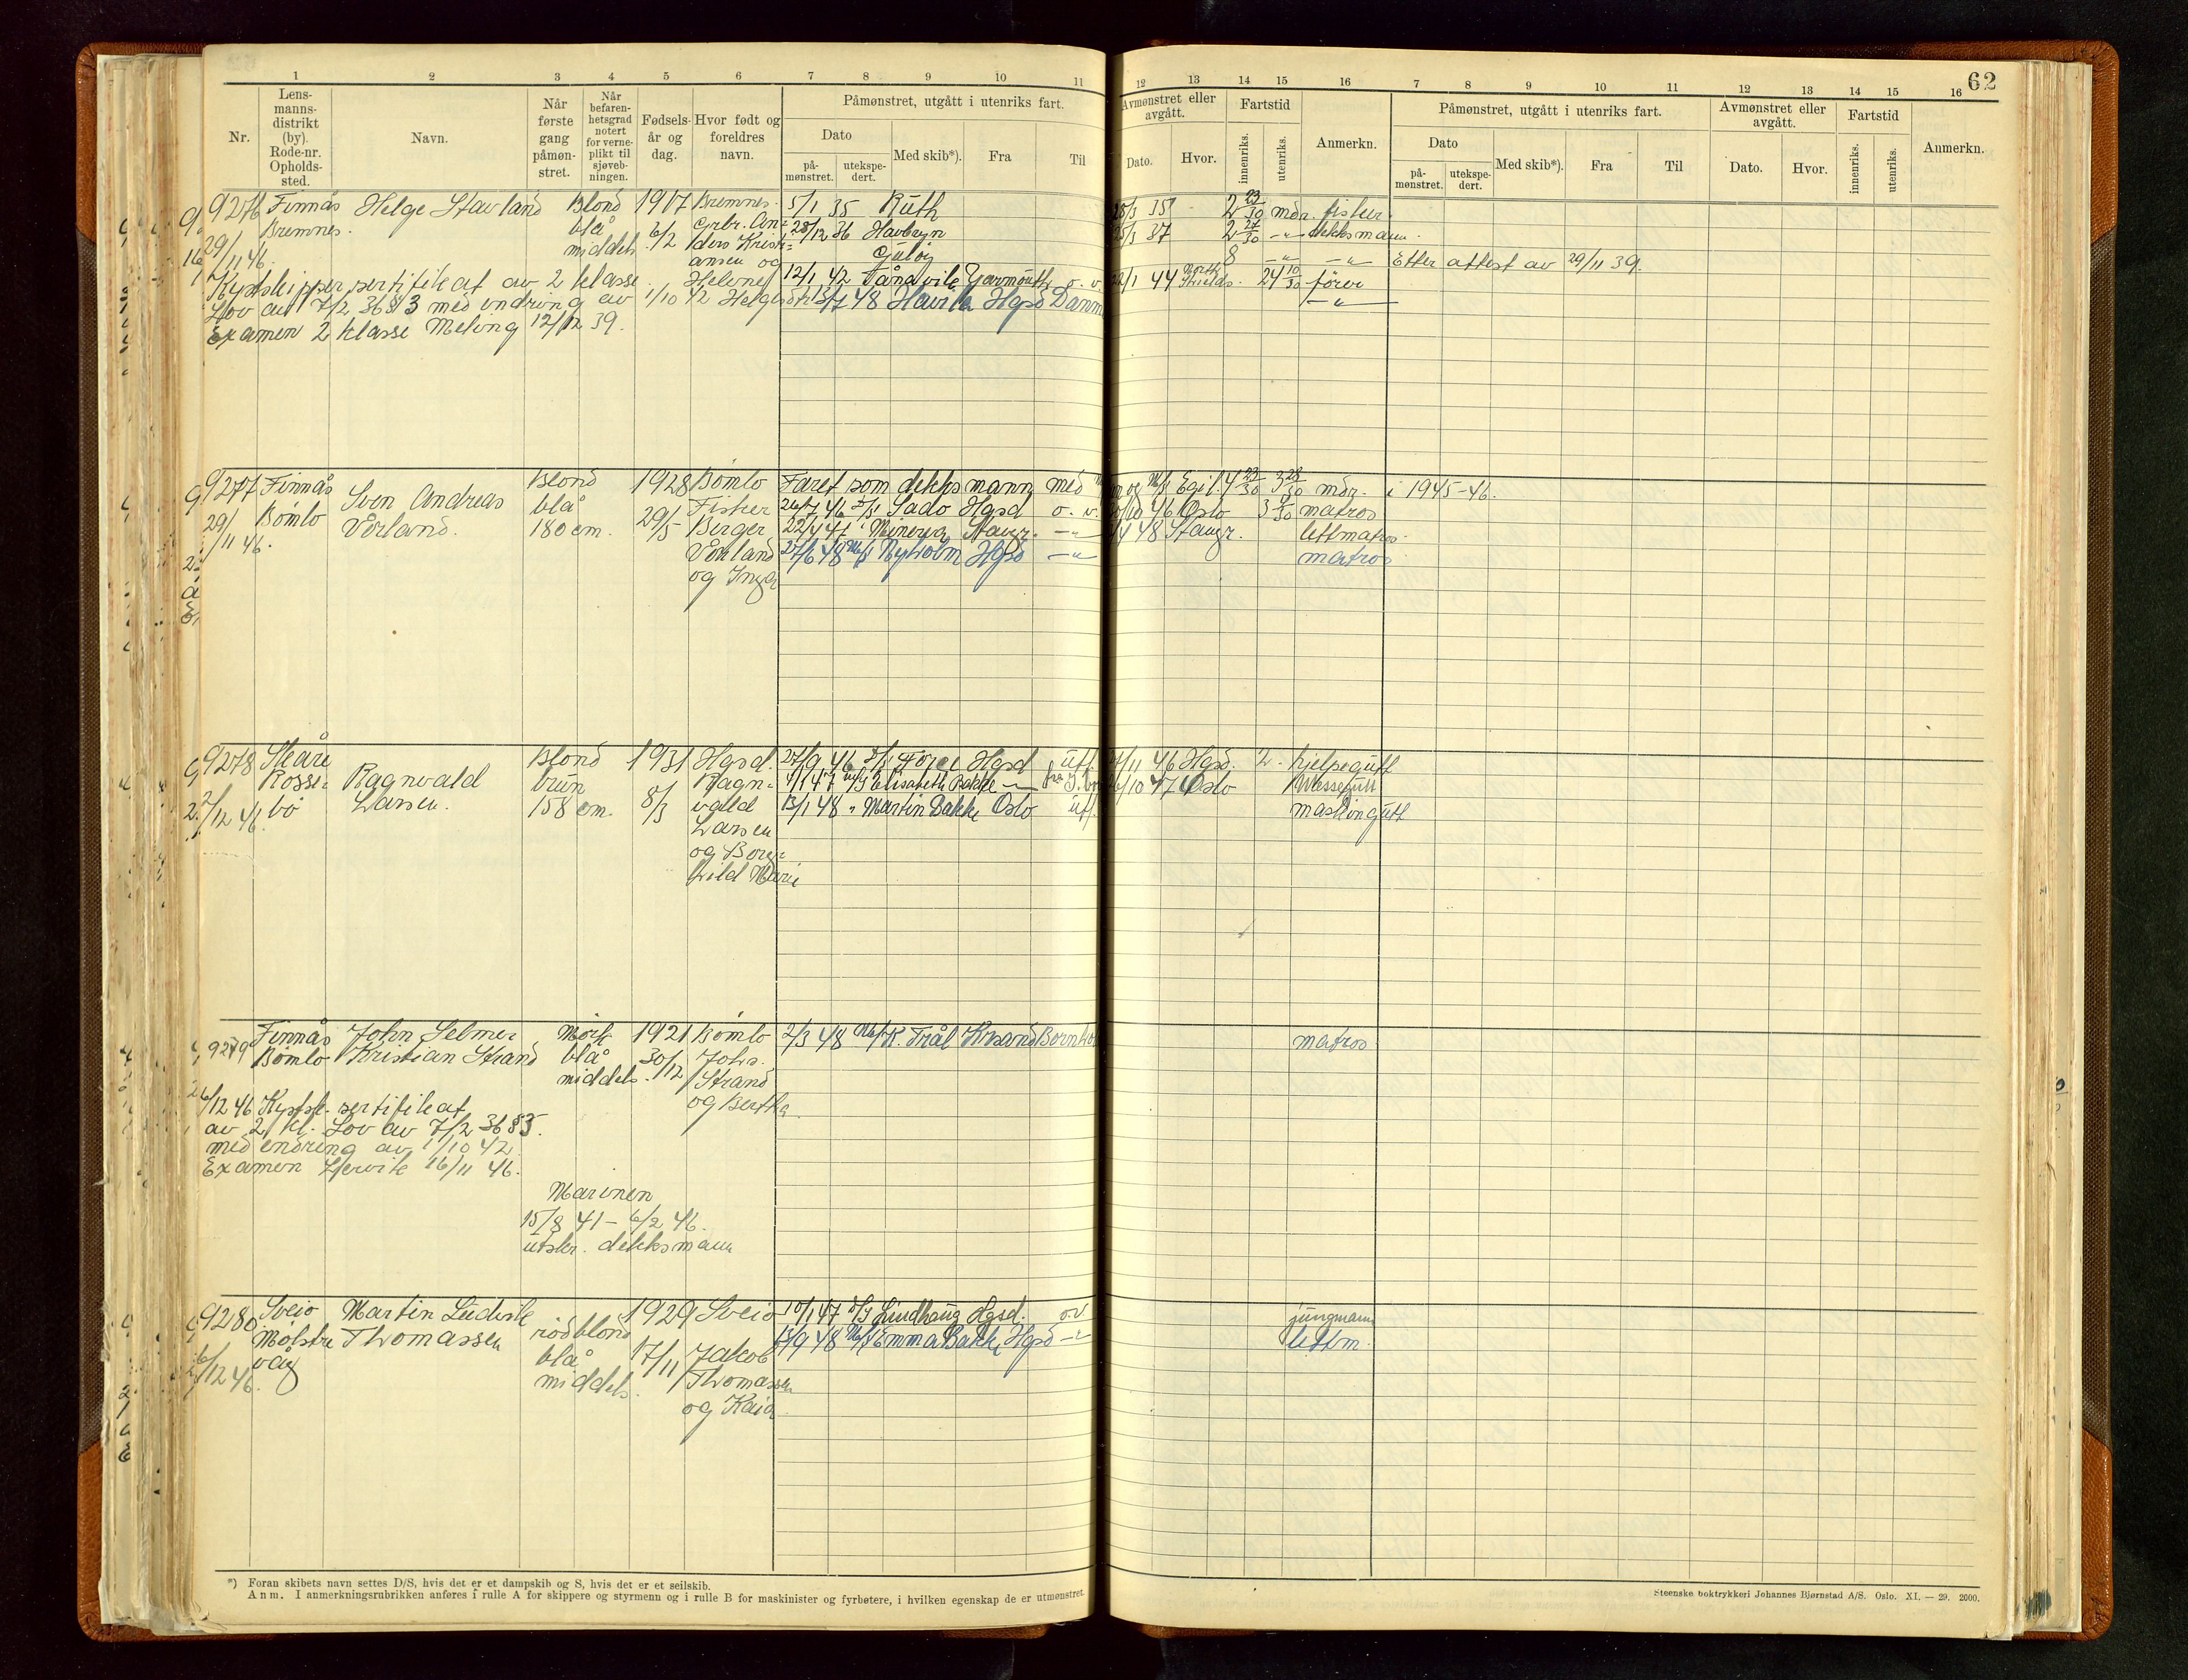 62
1 2 3 4 5 6 7 8 9 10 11 12 13 14 15 16 7 8 9 10 11 12 13 14 15 16
Nr.
Lens-
manns-
distrikt
(by).
Rode-nr.
Opholds-
sted.
Navn.
Når
første
gang
påmøn-
stret.
Når
befaren-
hetsgrad
notert
for verne-
plikt til
sjøveb-
ningen.
Fødsels-
år og
dag.
Hvor født og
foreldres
navn.
Påmønstret, utgått i utenriks fart.
Dato
på-
mønstret.
utekspe-
dert.
Med skib*).
Fra
Til
Avmønstret eller
avgått.
Dato.
Hvor.
Fartstid
innenriks.
utenriks.
Anmerkn.
Påmønstret, utgått i utenriks fart.
Dato
på-
mønstret.
utekspe-
dert.
Med skib*).
Fra
Til
Avmønstret eller
avgått.
Dato.
Hvor.
Fartstid
innenriks.
utenriks.
Anmerkn.
9276 Finnås Helge Stavland Blond 1907 Bremnes 5/1 35 Ruth 2 23/30 mdr. fisker
Bremnes. blå 6/2 Grbr. An= 28/12 36 Havbryn 25/3 37 2 27/30 -"- dekksmann.
29/11 46. middels ders Krist= 8 -"- -"- Etter attest av 29/11 39.
ansen og
Helene 12/1 42 22/1 44 North Shields. 24 10/30 fører
Kystskippersertifikat av 2 klasse
Lov av 7/2 36 § 3 med endring av 1/10 42 Helge 48 Havila Hgsd Danm -"-
Examen 2 klasse Meling 12/12 39.
9277 Finnås Sven Andreas Blond 1928 Bømlo Faret som dekksmann med og M/s Egil. 4 23/30 3 28/30 mdr. i 1945-46.
Bømlo Vorland. blå 29/5 Fisker 26/7 46 Sado Hgsd o. v. 46 Oslo matros
29/11 46. 180 cm. Berger 47 Minerva Stavgr. -"- 48 Stavgr. lettmatros.
Vorland 27/6 48 M/s Ryholm Hgsd -"- matros
og Inga
9278 Skåre Ragnvald Blond 1931 Hgsd. 27/9 46 Hgsd utl. 46 Hgsd. 2. hjelpegutt
Rosse= Larsen. brun 8/3 Ragn= 47 M/s Elisabeth Bakke 10 47 Oslo Messegutt
bø 158 cm. vald 13/1 48 " Martin Bakke Oslo utl. maskingutt
12 46. Larsen
og Borg=
hild Marie
9279 Finnås John Selmer Mørk 1921 Bømlo 2/3 48 M/s K. Trål Krsand Bornhol matros
Bømlo Kristian Strand blå 30/12 Johs.
middels. Strand
og Bertha.
6/12 46 Kystsk. sertifikat
av 2. kl. Lov av 7/2 36 § 3.
med endring av 1/10 42.
Examen Leirvik 16/11 46.
Marinen
15/8 41 - 6/2 46.
utskr. dekksmann
9280 Sveio Martin Ludvik rødblond 1929 Sveio 10/1 47 Lindhaug Hgsd. o.v jungmann
Mølstre Thomassen blå 17/11 Jakob 13/9 48 M/s Emma Bakke Hgsd -"- lettm.
våg middels. Thomassen
6/12 46. og Kaia
*) Foran skibets navn settes D/S, hvis det er et dampskib og S, hvis det er et seilskib.
Anm. I anmerkningsrubrikken anføres i rulle A for skippere og styrmenn og i rulle B for maskinister og fyrbøtere, i hvilken egenskap de er utmønstret.
Steenske boktrykkeri Johannes Bjørnstad A/S. Oslo. XI. — 29. 2000.